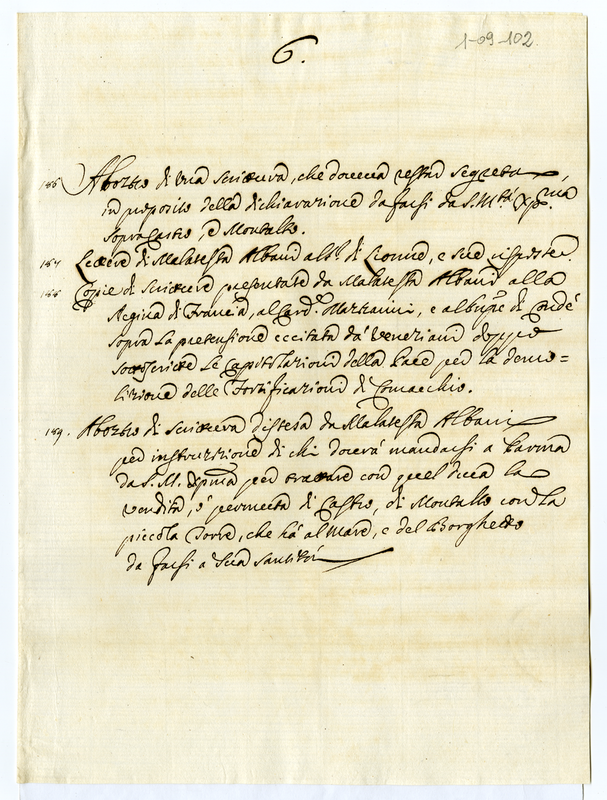 6.
1-09-102.
186 Abozzo di una scrittura, che doveva restar segreta,
in proposito della dichiarazione da farsi da S. M.tà Xpma
sopra Castro, e Montalto.
187 Lettere di Malatesta Albani all' di Lionne, e sue risposte.
188 Copie di scritture presentate da Malatesta Albani alla
Regina di Francia, al Card.le Mazzarini, e al di Condé
sopra la pretensione eccitata da' Veneziani doppo
sottoscritte le Capitolazioni della Pace per la demo=
lizione delle Fortificazioni di Comacchio.
189. Abozzo di scrittura distesa da Malatesta Albani
per instruzzione di chi doverà mandarsi a Parma
da S. M. Xpma per trattare con quel Duca la
vendita, ò permuta di Castro, di Montalto con la
piccola Torre, che hà al Mare, e del Borghetto
da farsi a Sua Santità